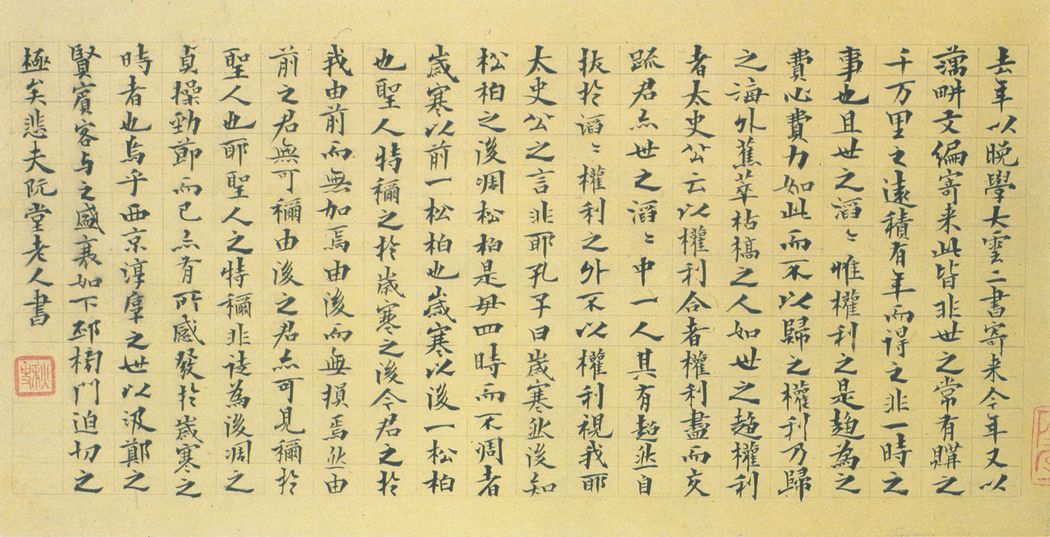 去年以晚學大雲二書寄來今年又以
藕畊文編寄来此皆非世之常有購之
千万里之遠積有年而得之非一時之
事也且世之滔〻惟權利之是趨為之
費心費力如此而不以歸之權利乃歸
之海外蕉萃枯槁之人如世之趨權利
者太史公云以權利合者權利盡而交
踈君亦世之滔〻中一人其有超然自
拔於滔〻權利之外不以權利視我耶
太史公之言非耶孔子曰歲寒然後知
松柏之後凋松柏是毋四時而不凋者
歲寒以前一松柏也歲寒以後一松柏
也聖人特稱之於歲寒之後今君之於
我由前而無加焉由後而無損焉然由
前之君無可稱由後之君亦可見稱於
聖人也耶聖人之特稱非徒為後凋之
貞操勁節而已亦有所感發於歲寒之
時者也烏乎西京淳厚之世以汲鄭之
賢賓客与之盛衰如下邳榜門迫切之
極矣悲夫阮堂老人書
秋史